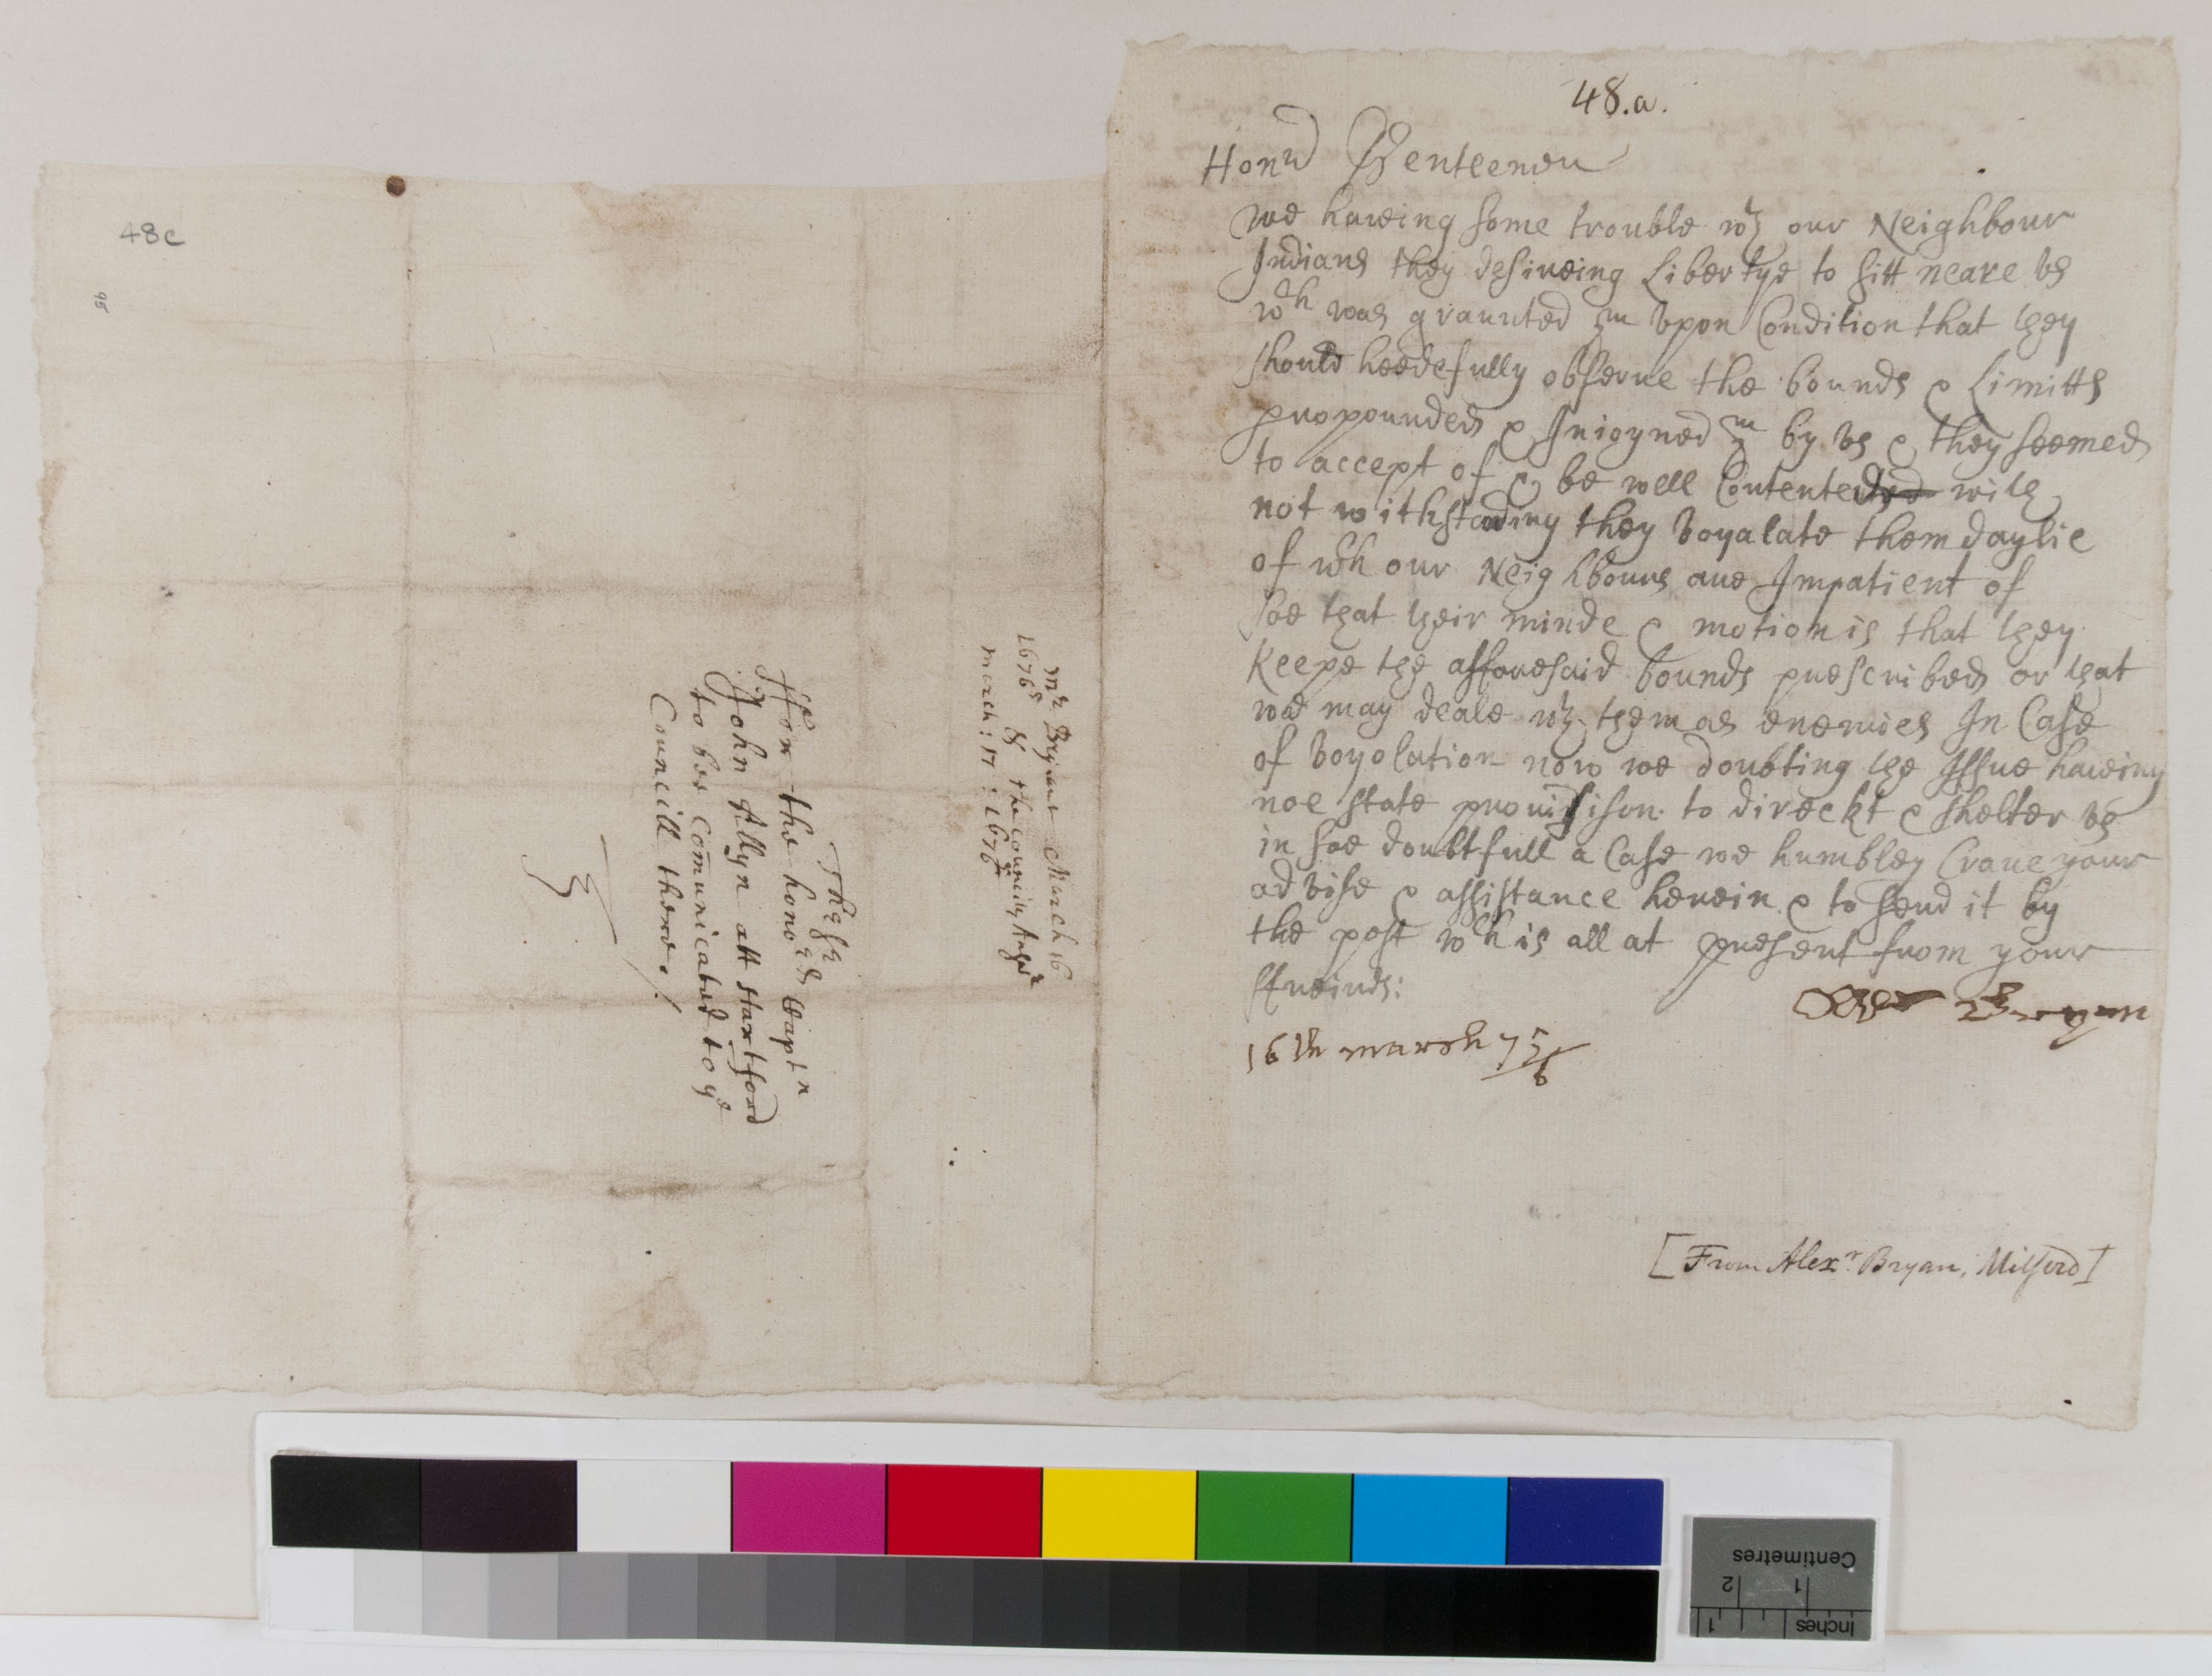 48.a.
Honrd Gentlemen
We haveing some trouble wth our Neighbour
Indians they desireing Libertye to sitt neare vs
wch was graunted ym vpon Condition that they
should heedefully obserue the bounds & Limitts
propounded & Inioyned ym by vs & they seemed
to accept of & be well Contented with
not withstanding they voyalate them daylie
of wch our Neighbours are Impatient of
soe that their minde & motion is that they
Keepe the afforesaid bounds prescribed or that
we may deale wth them as enemies In Case
of voyolation now we doubting the Issue haveing
noe state provisison to direckt & shelter vs
in soe doubtfull a Case we humbley Craue your
advise & assistance herein & to send it by
the post wch is all at present from your
ffreinds:
Alexr Bryan
16th march 75/6
[From Alexr. Bryan, Milford]
48c
95
mr Bryans March 16
1676 & the councills Answr
march: 17: 1676
These
ffor the honord Captn
John Allyn att Hartford
to be comunicated to ye
Councill there.